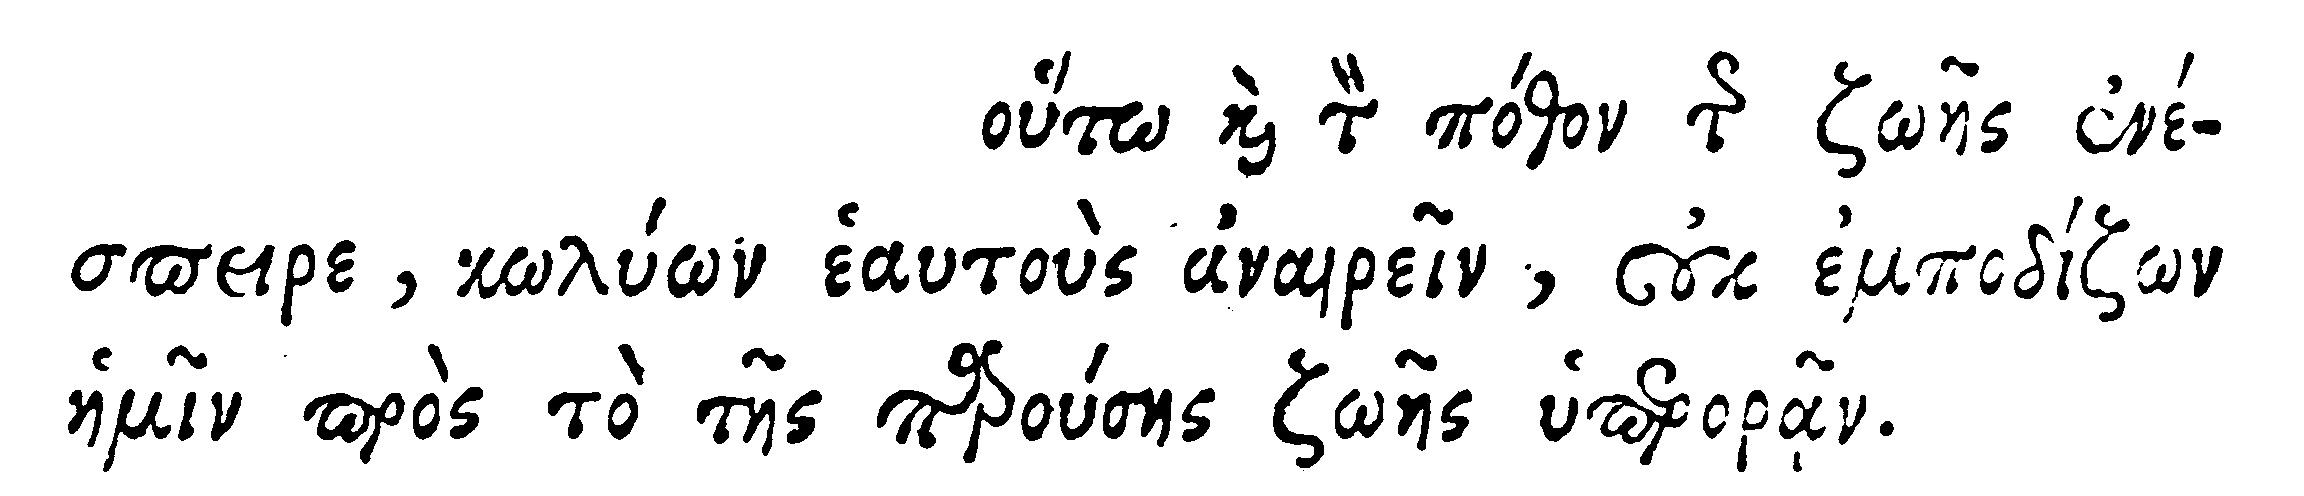 οὕτω ϗ̀ τὸν πόθον τῆς ζωῆς ἐνέ-
σπειρε, κωλύων ἑαυτοὺς ἀναιρεῖν, οὐκ ἐμποδίζων
ἡμῖν πρὸς τὸ τῆς παρούσης ζωῆς ὑπερορᾷν.